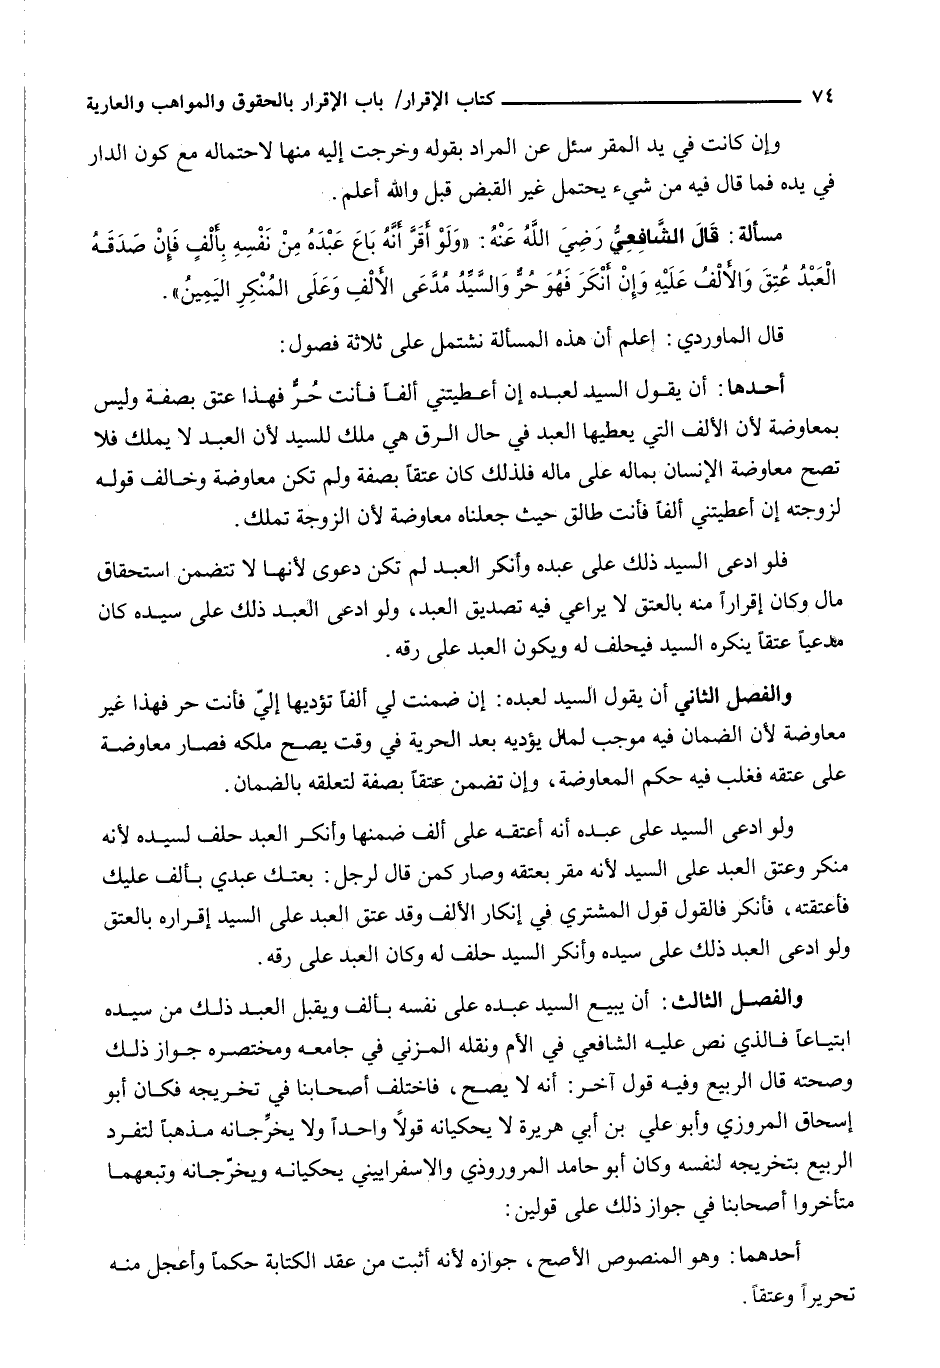 ٧٤ ــــــــــــــــــــــــــــ كتاب الإقرار/ باب الإقرار بالحقوق والمواهب والعارية
وإن كانت في يد المقر سئل عن المراد بقوله وخرجت إليه منها لاحتماله مع كون الدار
في يده فما قال فيه من شيء يحتمل غير القبض قبل والله أعلم.
مسألة: قَالَ الشَّافِعِيُّ رَضِيَ اللَّهُ عَنْهُ: «وَلَوْ أَقَرَّ أَنَّهُ بَاعَ عَبْدَهُ مِنْ نَفْسِهِ بِأَلْفٍ فَإِن صَدَقَهُ
الْعَبْدُ عُتِقَ وَالْأَلْفُ عَلَيْهِ وَإِنْ أَنْكَرَ فَهُوَ حُرٌّ وَالسَّيِّدُ مُدَّعَى الأَلْفِ وَعَلَى المُنْكِرِ اليَمِينُ».
قال الماوردي: إعلم أن هذه المسألة نشتمل على ثلاثة فصول:
أحدها: أن يقول السيد لعبده إن أعطيتني ألفاً فأنت حُرٌّ فهذا عتق بصفة وليس
بمعاوضة لأن الألف التي يعطيها العبد في حال الرق هي ملك للسيد لأن العبد لا يملك فلا
تصح معاوضة الإنسان بماله على ماله فلذلك كان عتقاً بصفة ولم تكن معاوضة وخالف قوله
لزوجته إن أعطيتني ألفاً فأنت طالق حيث جعلناه معاوضة لأن الزوجة تملك.
فلو ادعى السيد ذلك على عبده وأنكر العبد لم تكن دعوى لأنها لا تتضمن استحقاق
مال وكان إقراراً منه بالعتق لا يراعي فيه تصديق العبد، ولو ادعى العبد ذلك على سيده كان
مدعياً عتقاً ينكره السيد فيحلف له ويكون العبد على رقه.
والفصل الثاني أن يقول السيد لعبده: إن ضمنت لي ألفاً تؤديها إليّ فأنت حر فهذا غير
معاوضة لأن الضمان فيه موجب لمال يؤديه بعد الحرية في وقت يصح ملكه فصار معاوضة
على عتقه فغلب فيه حكم المعاوضة، وإن تضمن عتقاً بصفة لتعلقه بالضمان.
ولو ادعى السيد على عبده أنه أعتقه على ألف ضمنها وأنكر العبد حلف لسيده لأنه
منكر وعتق العبد على السيد لأنه مقر بعتقه وصار كمن قال لرجل: بعتك عبدي بألف عليك
فأعتقته، فأنكر فالقول قول المشتري في إنكار الألف وقد عتق العبد على السيد إقراره بالعتق
ولو ادعى العبد ذلك على سيده وأنكر السيد حلف له وكان العبد على رقه.
والفصل الثالث: أن يبيع السيد عبده على نفسه بألف ويقبل العبد ذلك من سيده
ابتياعاً فالذي نص عليه الشافعي في الأم ونقله المزني في جامعه ومختصره جواز ذلك
وصحته قال الربيع وفيه قول آخر: أنه لا يصح، فاختلف أصحابنا في تخريجه فكان أبو
إسحاق المروزي وأبو علي بن أبي هريرة لا يحكيانه قولًا واحداً ولا يخرِّجانه مذهباً لتفرد
الربيع بتخريجه لنفسه وكان أبو حامد المروروذي والاسفراييني يحكيانه ويخرّجانه وتبعهما
متأخروا أصحابنا في جواز ذلك على قولين:
أحدهما: وهو المنصوص الأصح، جوازه لأنه أثبت من عقد الكتابة حكماً وأعجل منه
تحريراً وعتقاً.